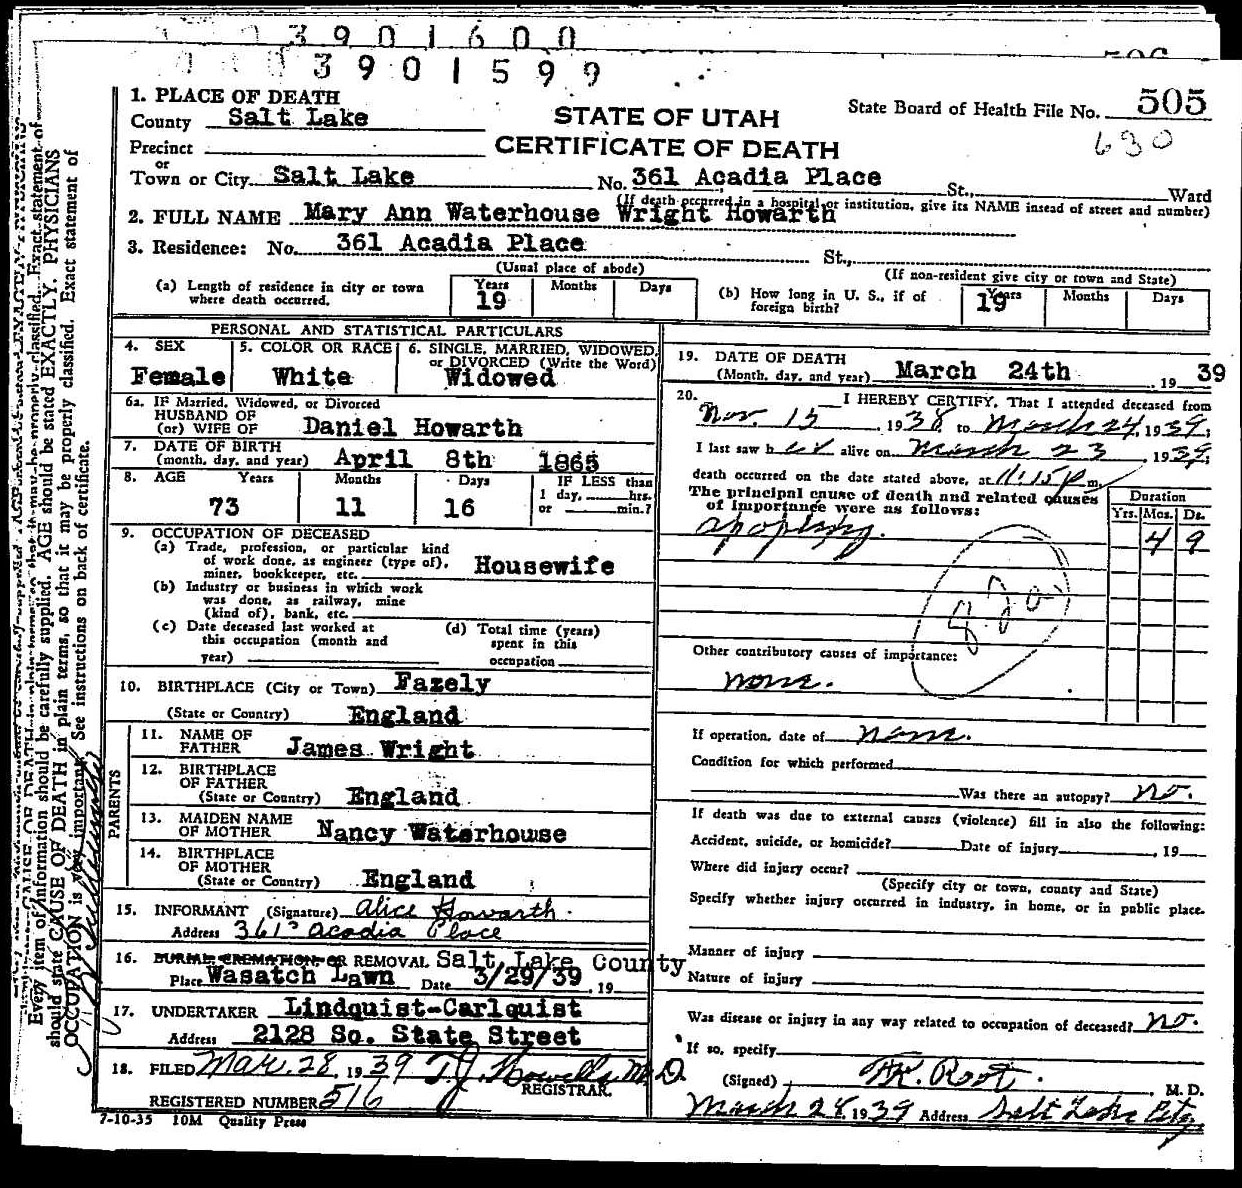 3901600
3901599
1. PLACE OF DEATH
County Salt Lake
STATE OF UTAH
CERTIFICATE OF DEATH
State Board of Health File No. 505
630
Precinct
or
Town or City Salt Lake No. 361 Acadia Place St., Ward
(If death occurred in a hospital or institution, give its NAME insead of street and number)
2. FULL NAME Mary Ann Waterhouse Wright Howarth
3. Residence: No. 361 Acadia Place St.,
(Usual place of abode) (If non-resident give city or town and State)
(a) Length of residence in city or town where death occurred. Years 19 Months Days
(b) How long in U. S., if of foreign birth? Years 19 Months Days
PERSONAL AND STATISTICAL PARTICULARS
4. SEX Female
5. COLOR OR RACE White
6. SINGLE, MARRIED, WIDOWED, or DIVORCED (Write the Word) Widowed
6a. IF Married, Widowed, or Divorced
HUSBAND OF
(or) WIFE OF Daniel Howarth
7. DATE OF BIRTH
(month, day, and year) April 8th 1865
8. AGE Years 73 Months 11 Days 16
IF LESS than
1 day, hrs.
or min.?
9. OCCUPATION OF DECEASED
(a) Trade, profession, or particular kind
of work done, as engineer (type of),
miner, bookkeeper, etc. Housewife
(b) Industry or business in which work
was done, as railway, mine
(kind of), bank, etc.
(c) Date deceased last worked at
this occupation (month and
year)
(d) Total time (years)
spent in this
occupation
10. BIRTHPLACE (City or Town) Fazely
(State or Country) England
PARENTS
11. NAME OF
FATHER James Wright
12. BIRTHPLACE
OF FATHER
(State or Country) England
13. MAIDEN NAME
OF MOTHER Nancy Waterhouse
14. BIRTHPLACE
OF MOTHER
(State or Country) England
15. INFORMANT (Signature) Alice Howarth
Address 361 Acadia Place
16. BURIAL CREMATION OR REMOVAL Salt Lake County
Place Wasatch Lawn Date 3/29/39 , 19
17. UNDERTAKER Lindquist-Carlquist
Address 2128 So. State Street
18. FILED Mar. 28, 1939 T.J. Howells, M.D.
REGISTRAR.
REGISTERED NUMBER 516
7-10-35 10M Quality Press
19. DATE OF DEATH
(Month, day, and year) March 24th 19 39
20. I HEREBY CERTIFY, That I attended deceased from
Nov. 15, 1938, to March 24, 1939;
I last saw her alive on March 23, 1939;
death occurred on the date stated above, at 11:15 p m.
The principal cause of death and related causes
of importance were as follows:
Duration
Yrs. Mos. Ds.
Apoplexy. 4 9
Other contributory causes of importance:
none.
If operation, date of none.
Condition for which performed
Was there an autopsy? no.
If death was due to external causes (violence) fill in also the following:
Accident, suicide, or homicide? Date of injury , 19
Where did injury occur?
(Specify city or town, county and State)
Specify whether injury occurred in industry, in home, or in public place.
Manner of injury
Nature of injury
Was disease or injury in any way related to occupation of deceased? no.
If so, specify
(Signed) F.K. Root. , M. D.
March 28, 1939 Address Salt Lake City,
Every item of information should be carefully supplied. AGE should be stated EXACTLY. PHYSICIANS
should state CAUSE OF DEATH in plain terms, so that it may be properly classified. Exact statement of
OCCUPATION is very important. See instructions on back of certificate.